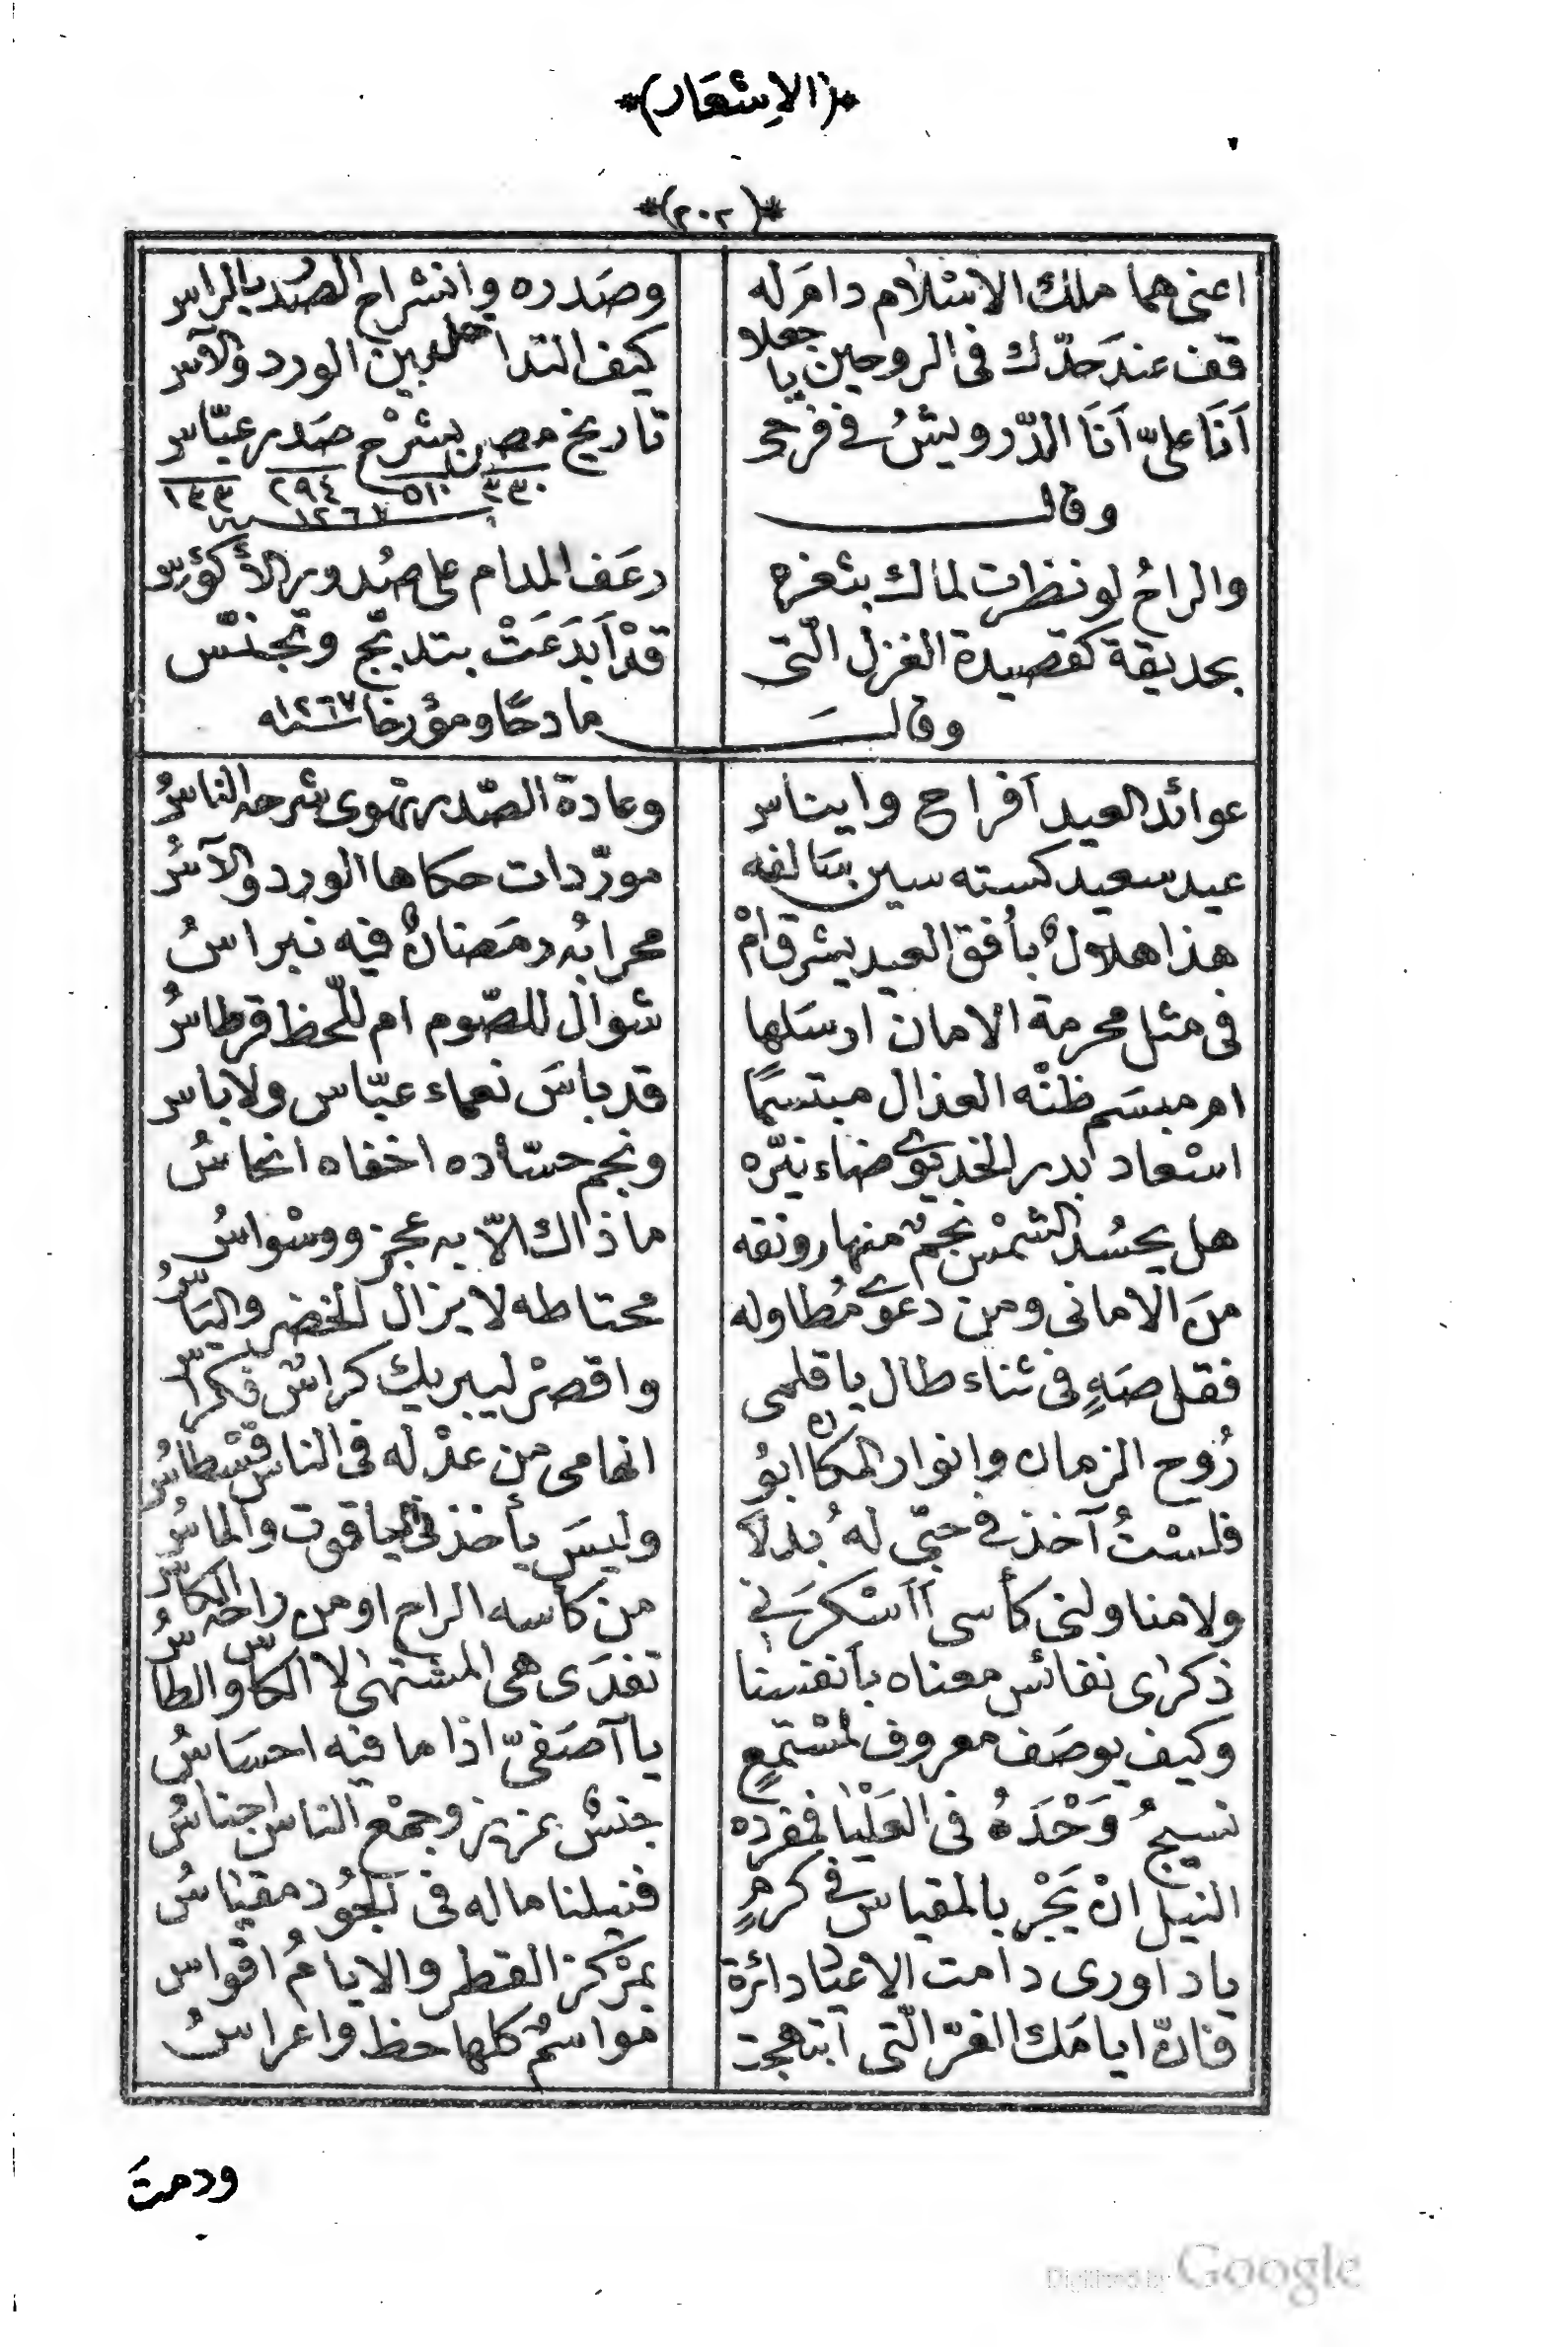 *(الإشعار)*
*(٢٠٢)*
اعنى هما ملك الاسلام دامَ له وصَدره وانشراح الصدر بالراس
قف عند حَدّك فى الروحين يا جعلا كيف التداخل بين الورد والآس
اَنَا علىّ اَنَا الدّرويشُ فى فرجى تاريخ مصر بشرْح صَدر عبّاس
٣٣٠ ٥١٠ ٢٩٤ ١٣٣
١٢٦٧
وقال
والراحُ لو نظرت لماك بثغره رعَف المدام على صُدور الأكؤس
بحديقة كقصيدة الغزل الّتى قدْ اَبدَعَتْ بتدبّج وتجنّس
وقالَ مادحًا ومؤرخا سنه ١٢٦٧
عوائد العيد آفراح وايناس وعادة الصّدر تهوى شرحه الناسُ
عيد سعيد كسته سين سَالفه مورّدات حكاها الورد والآسُ
هذا هلالٌ بأفق العيد يشرق اَمْ محرابُه رمَضانٌ فيه نبراسُ
فى مثل محرمة الامان ارسَلها شوال للصّوم ام للّحظ قرطاسُ
ام مبسَم ظنْه العذال مبتسمًا قد باسَ نعماء عبّاس ولا باس
اسْعاد بدر الخديوى ضاء نيّره ونجم حسّاده اخفاه انحاسُ
هل يحسُد الشمْس نجمٌ منها رونقه ما ذاك الّا به عجز ووسْواسُ
منَ الامانى ومن دعوَى مُطاوله محتاطه لا يزال الخضر والياسُ
فقل صَهٍ فى ثناء طال يا قلمى واقصرْ ليبريك كراسٌ فكراسُ
رُوح الزمان وانوار المكان ابوُ الهامى من عدْله فى الناس قسْطاسُ
فلسْتُ آخذ فى حبّى لهُ بدلاً وليسَ يأخذنى الياقوت والماسُ
ولا مناولنى كأسى اَاَسْكرَنى من كأسه الراح او من راحه الكاسُ
ذكراى نفائس معناه بأنفسنا تفدَى هى المشتهى لا الكاس والطاسُ
وكيف يوصَف معروف لمسْتمعٍ يا آصَفىّ اذا ما فيه احسَاسُ
نسيجُ وَحْدَهُ فى العَليْا فمفرده جنسٌ عزيز وجمْع الناس اجناسُ
النيل انْ يَجْرِ بالمقياس فى كرمٍ فنيلنا ما له فى الجُود مقياسُ
يا داورى دامت الاعياد دائرة بمرْكز القطر والايامُ اقواس
فانّ ايامَك الغرّ الّتى ابتهجت مواسمٌ كلها حظ واعراسُ
ودمتَ
Digitized by Google